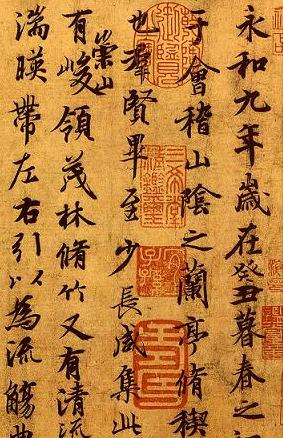 永和九年歲在癸丑暮春之
于會稽山陰之蘭亭脩稧
也羣賢畢至少長咸集此
有崇山峻領茂林脩竹又有清流
湍暎帶左右引以為流觴曲